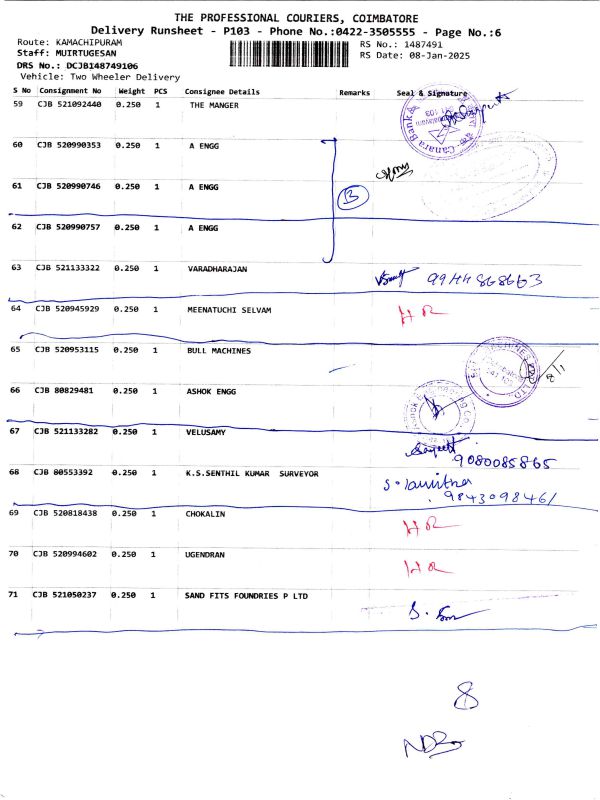 THE PROFESSIONAL COURIERS, COIMBATORE
Delivery Runsheet - P103 - Phone No.:0422-3505555 - Page No.:6
Route: KAMACHIPURAM RS No.: 1487491
Staff: MUIRTUGESAN RS Date: 08-Jan-2025
DRS No.: DCJB148749106
Vehicle: Two Wheeler Delivery
S No Consignment No Weight PCS Consignee Details Remarks Seal & Signature
59 CJB 521092440 0.250 1 THE MANGER
Canara Bank
60 CJB 520990353 0.250 1 A ENGG
61 CJB 520990746 0.250 1 A ENGG
62 CJB 520990757 0.250 1 A ENGG
63 CJB 521133322 0.250 1 VARADHARAJAN 9944868663
64 CJB 520945929 0.250 1 MEENATUCHI SELVAM HR
65 CJB 520953115 0.250 1 BULL MACHINES 8/1
66 CJB 80829481 0.250 1 ASHOK ENGG
67 CJB 521133282 0.250 1 VELUSAMY 9080085865
68 CJB 80553392 0.250 1 K.S.SENTHIL KUMAR SURVEYOR
9843098461
69 CJB 520818438 0.250 1 CHOKALIN HR
70 CJB 520994602 0.250 1 UGENDRAN HR
71 CJB 521050237 0.250 1 SAND FITS FOUNDRIES P LTD
8